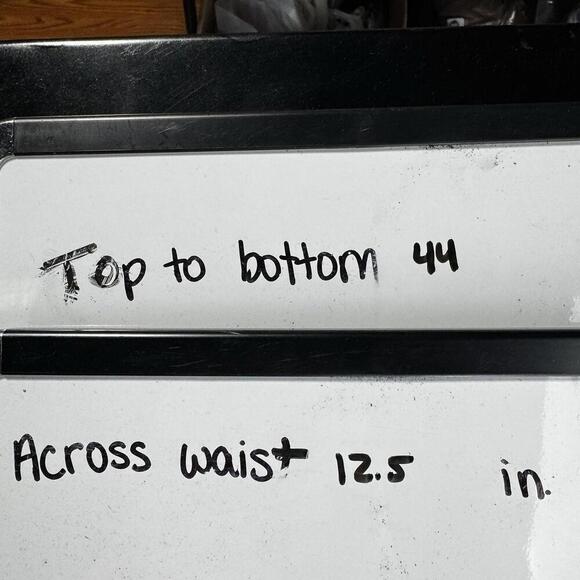 Top to bottom 44
Across waist 12.5 in.